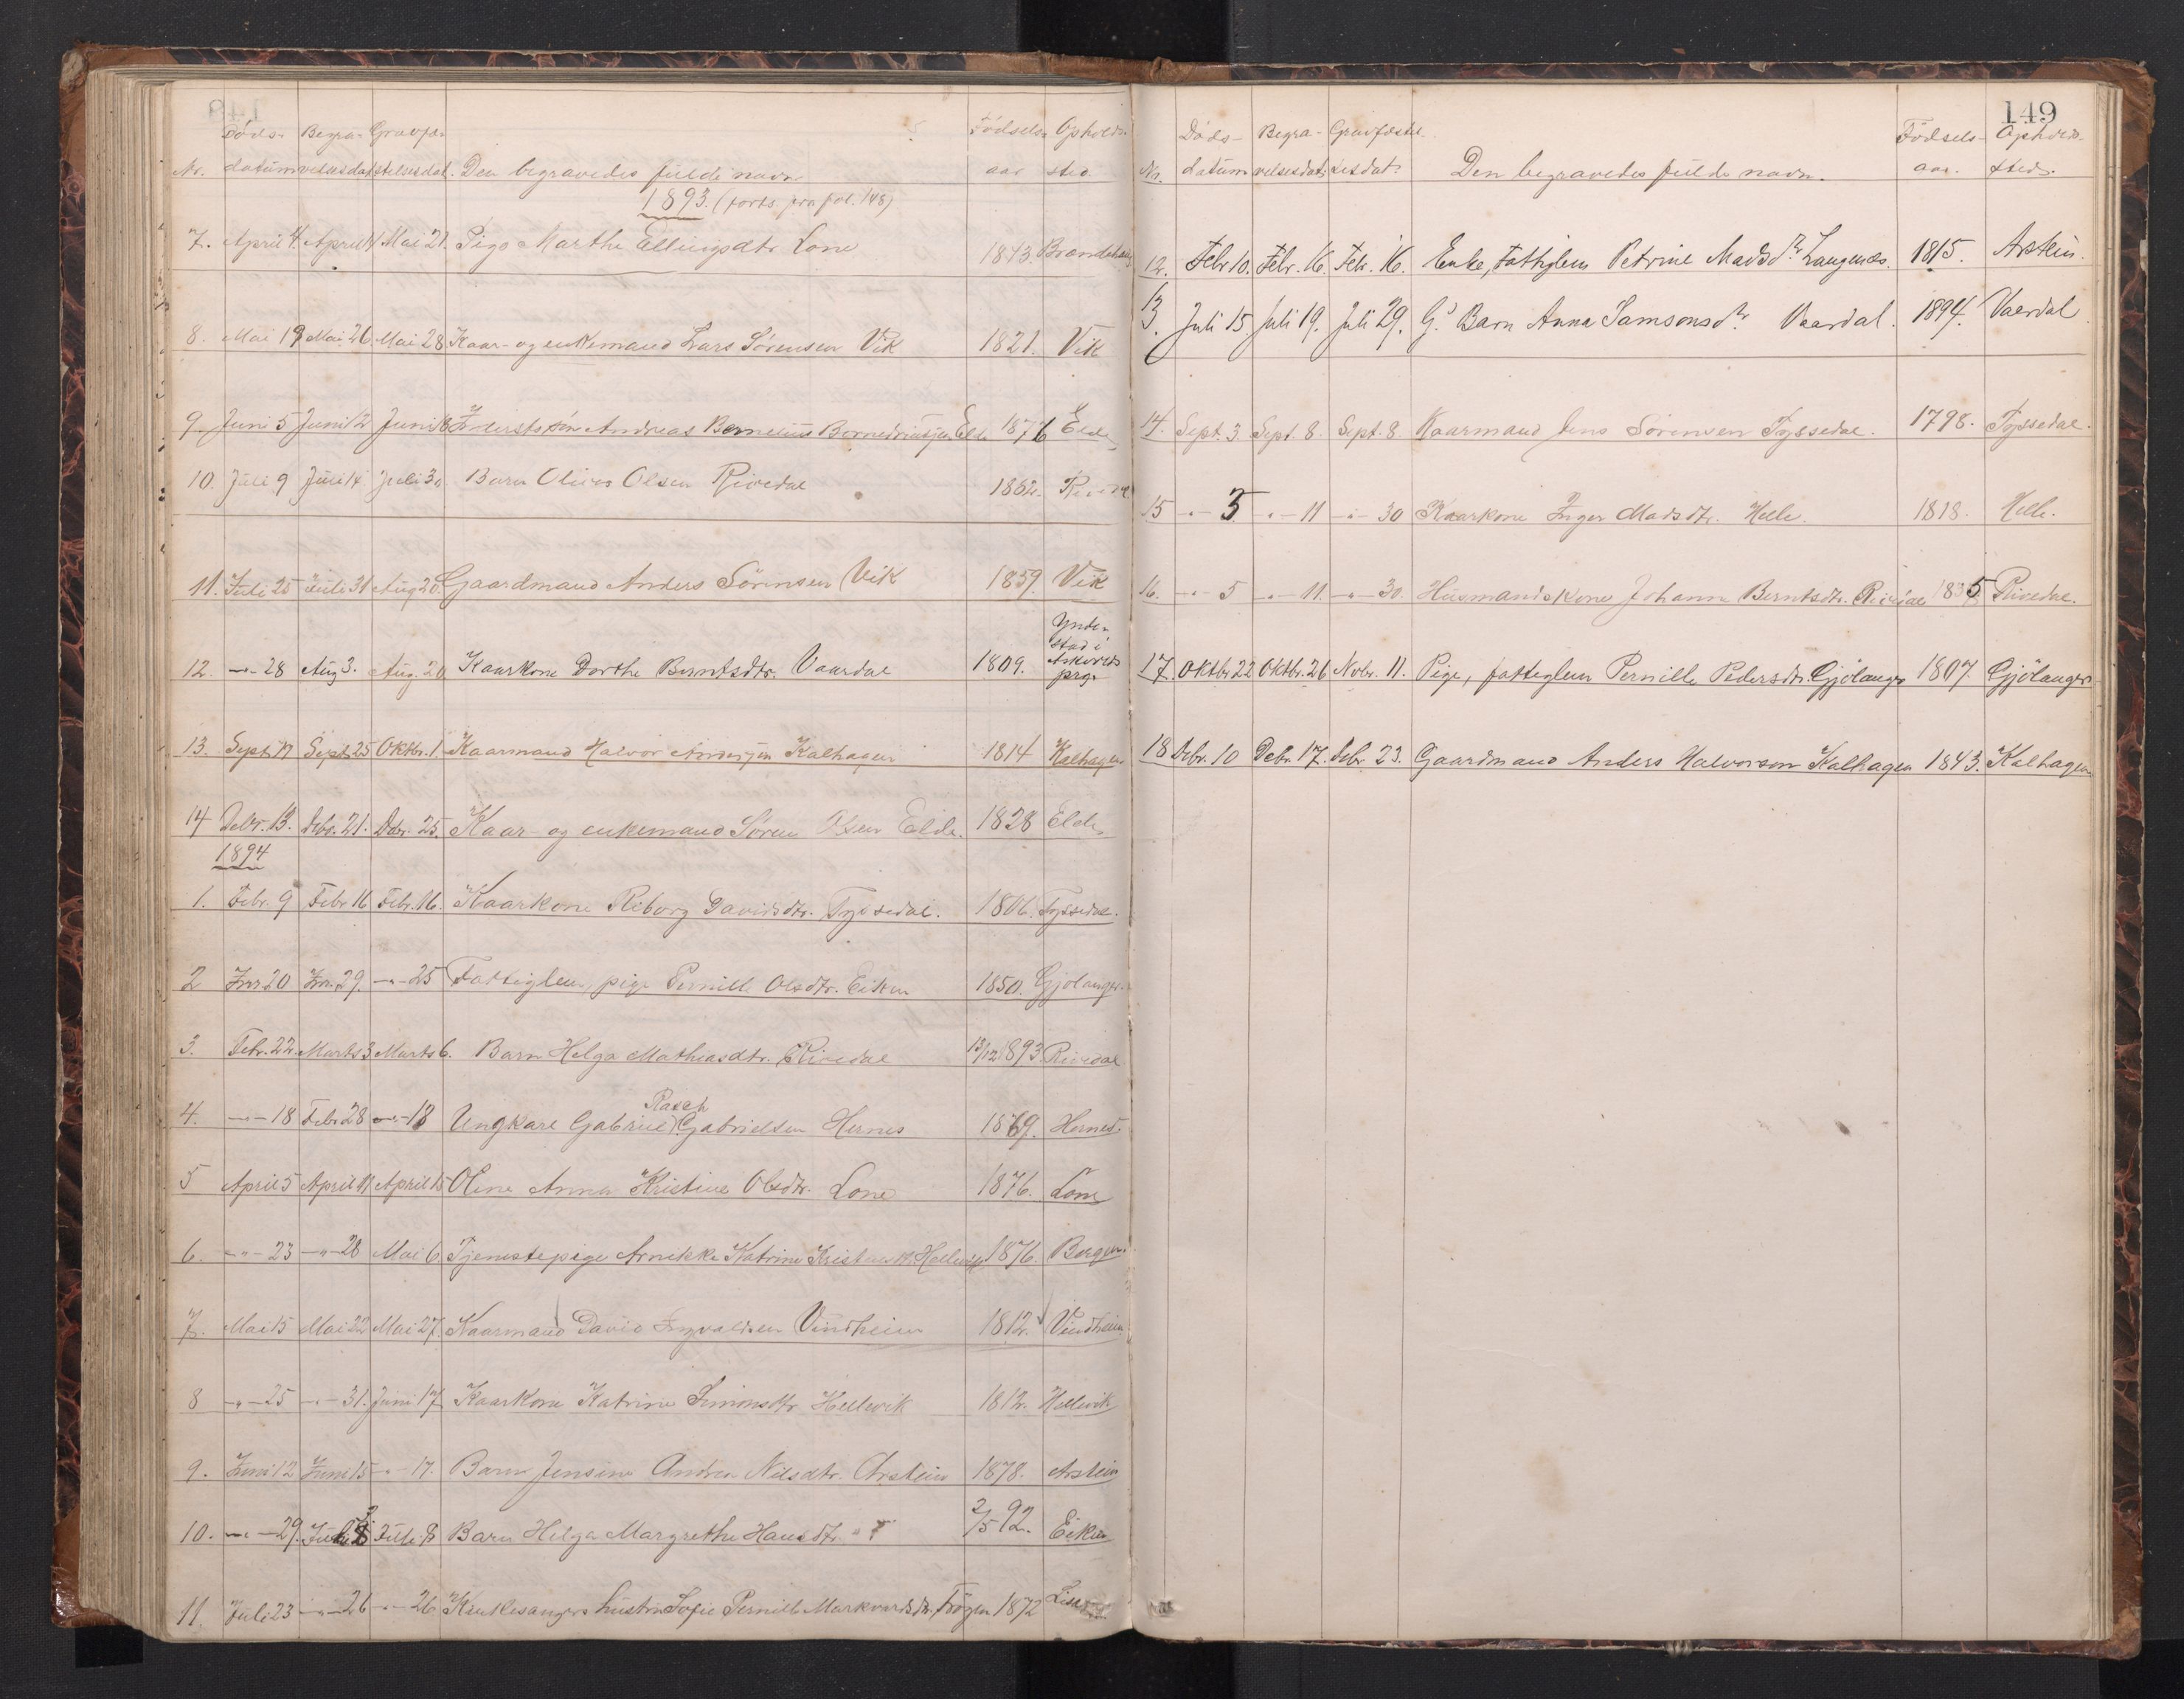 Døds- Begra- Gravfæ- Fødsels- Opholds-
Nr. datum velsesdat. stelsesdat. Den begravedes fulde navn aar sted
1893. (forts. fra fol. 148)
7. April 4 April 11 Mai 21. Pige Marthe Ellingsdtr. Lone 1843
8. Mai 19 Mai 26 Mai 28 Kaar- og enkemand Lars Sørensen Vik 1821. Vik
9. Juni 5 Juni 12 Juni 18 Andreas Elde 1876 Elde
10. Juli 9 Juli 14 Juli 30 Barn Olsen Rivedal 1862. Rivedal
11. Juli 25 Juli 31 Aug 20. Gaardmand Anders Sørensen Vik 1859. Vik
12. -"- 28 Aug 3. Aug. 20 Kaarkone Dorthe Berntsdtr. Vaardal 1809. Ynde-
stad i
Askvold
prg.
13. Sept. 17 Sept. 25 Oktbr. 1. Kaarmand Halvor Andersen Kalhagen 1814 Kalhagen
14 Debr. 13. Debr. 21. Debr. 25. Kaar- og enkemand Søren Olsen Elde. 1828 Elde
1894
1. Febr. 9 Febr 16 Febr. 16. Kaarkone Riborg Davidsdtr. Tyssedal. 1806. Tyssedal.
2 Jnr 20 Jnr. 29. -"- 25 Fattiglem, pige Pernille Olsdtr. Eiken 1850. Gjølanger.
3. Febr. 22. Marts 3 Marts 6. Barn Helga Mathiasdtr. Rivedal 13/12 1893. Rivedal
4. -"- 18 Febr 28 -"- 18 Ungkarl Gabriel Rasch Gabrielsen Hernes 1869. Hernes.
5 April 5 April 11 April 15 Oline Anna Kristine Olsdtr. Lone 1876. Lone
6. -"- 23 -"- 28 Mai 6 Tjenestepige Katrine 1876. Bergen.
7. Mai 15 Mai 22 Mai 27. Kaarmand David Ingvaldsen Vindheim 1812. Vindheim
8 -"- 25 -"- 31. Juni 17 Kaarkone Katrine Simonsdtr Hellevik 1812. Hellevik
9. Juni 12 Juni 15 -"- 17. Barn Jensine Andrea Nilsdtr. Arstein 1878. Arstein
10. -"- 29. Juli 3 Juli 8 Barn Helga Margrethe Hansdtr. 2/5 92. Eiken
11. Juli 23 -"- 26 -"- 26 Kirkesangers hustru Sofie Pernille Markvardsdtr. 1872
149
Døds- Begra- Gravfæste- Fødsels- Opholds-
Nr. datum velsesdat. sesdat. Den begravedes fulde navn. aar. sted.
12. Febr 10. Febr. 16. Febr. 16. Enke, Fattiglem Petrine Madsdr. Langenæs. 1815. Arstein.
13. Juli 15 Juli 19. Juli 29. G. Barn Anna Samsonsdr. Vaardal. 1894. Vaardal.
14. Sept. 3. Sept. 8. Sept. 8. Kaarmand Jens Sørensen Tyssedal. 1798. Tyssedal.
15 -"- 5. -"- 11 -"- 30 Kaarkone Inger Madsdtr. Helle. 1818. Helle.
16. -"- 5 -"- 11. -"- 30. Husmandskone Johanne Berntsdtr. Rivedal 1835 Rivedal.
17. Oktbr 22 Oktbr. 26 Novbr. 11. Pige, fattiglem Pernille Pedersdtr. Gjølanger 1807. Gjølanger
18 Debr. 10 Debr. 17. Debr 23. Gaardmand Anders Halvorsen Kalhagen 1843. Kalhagen